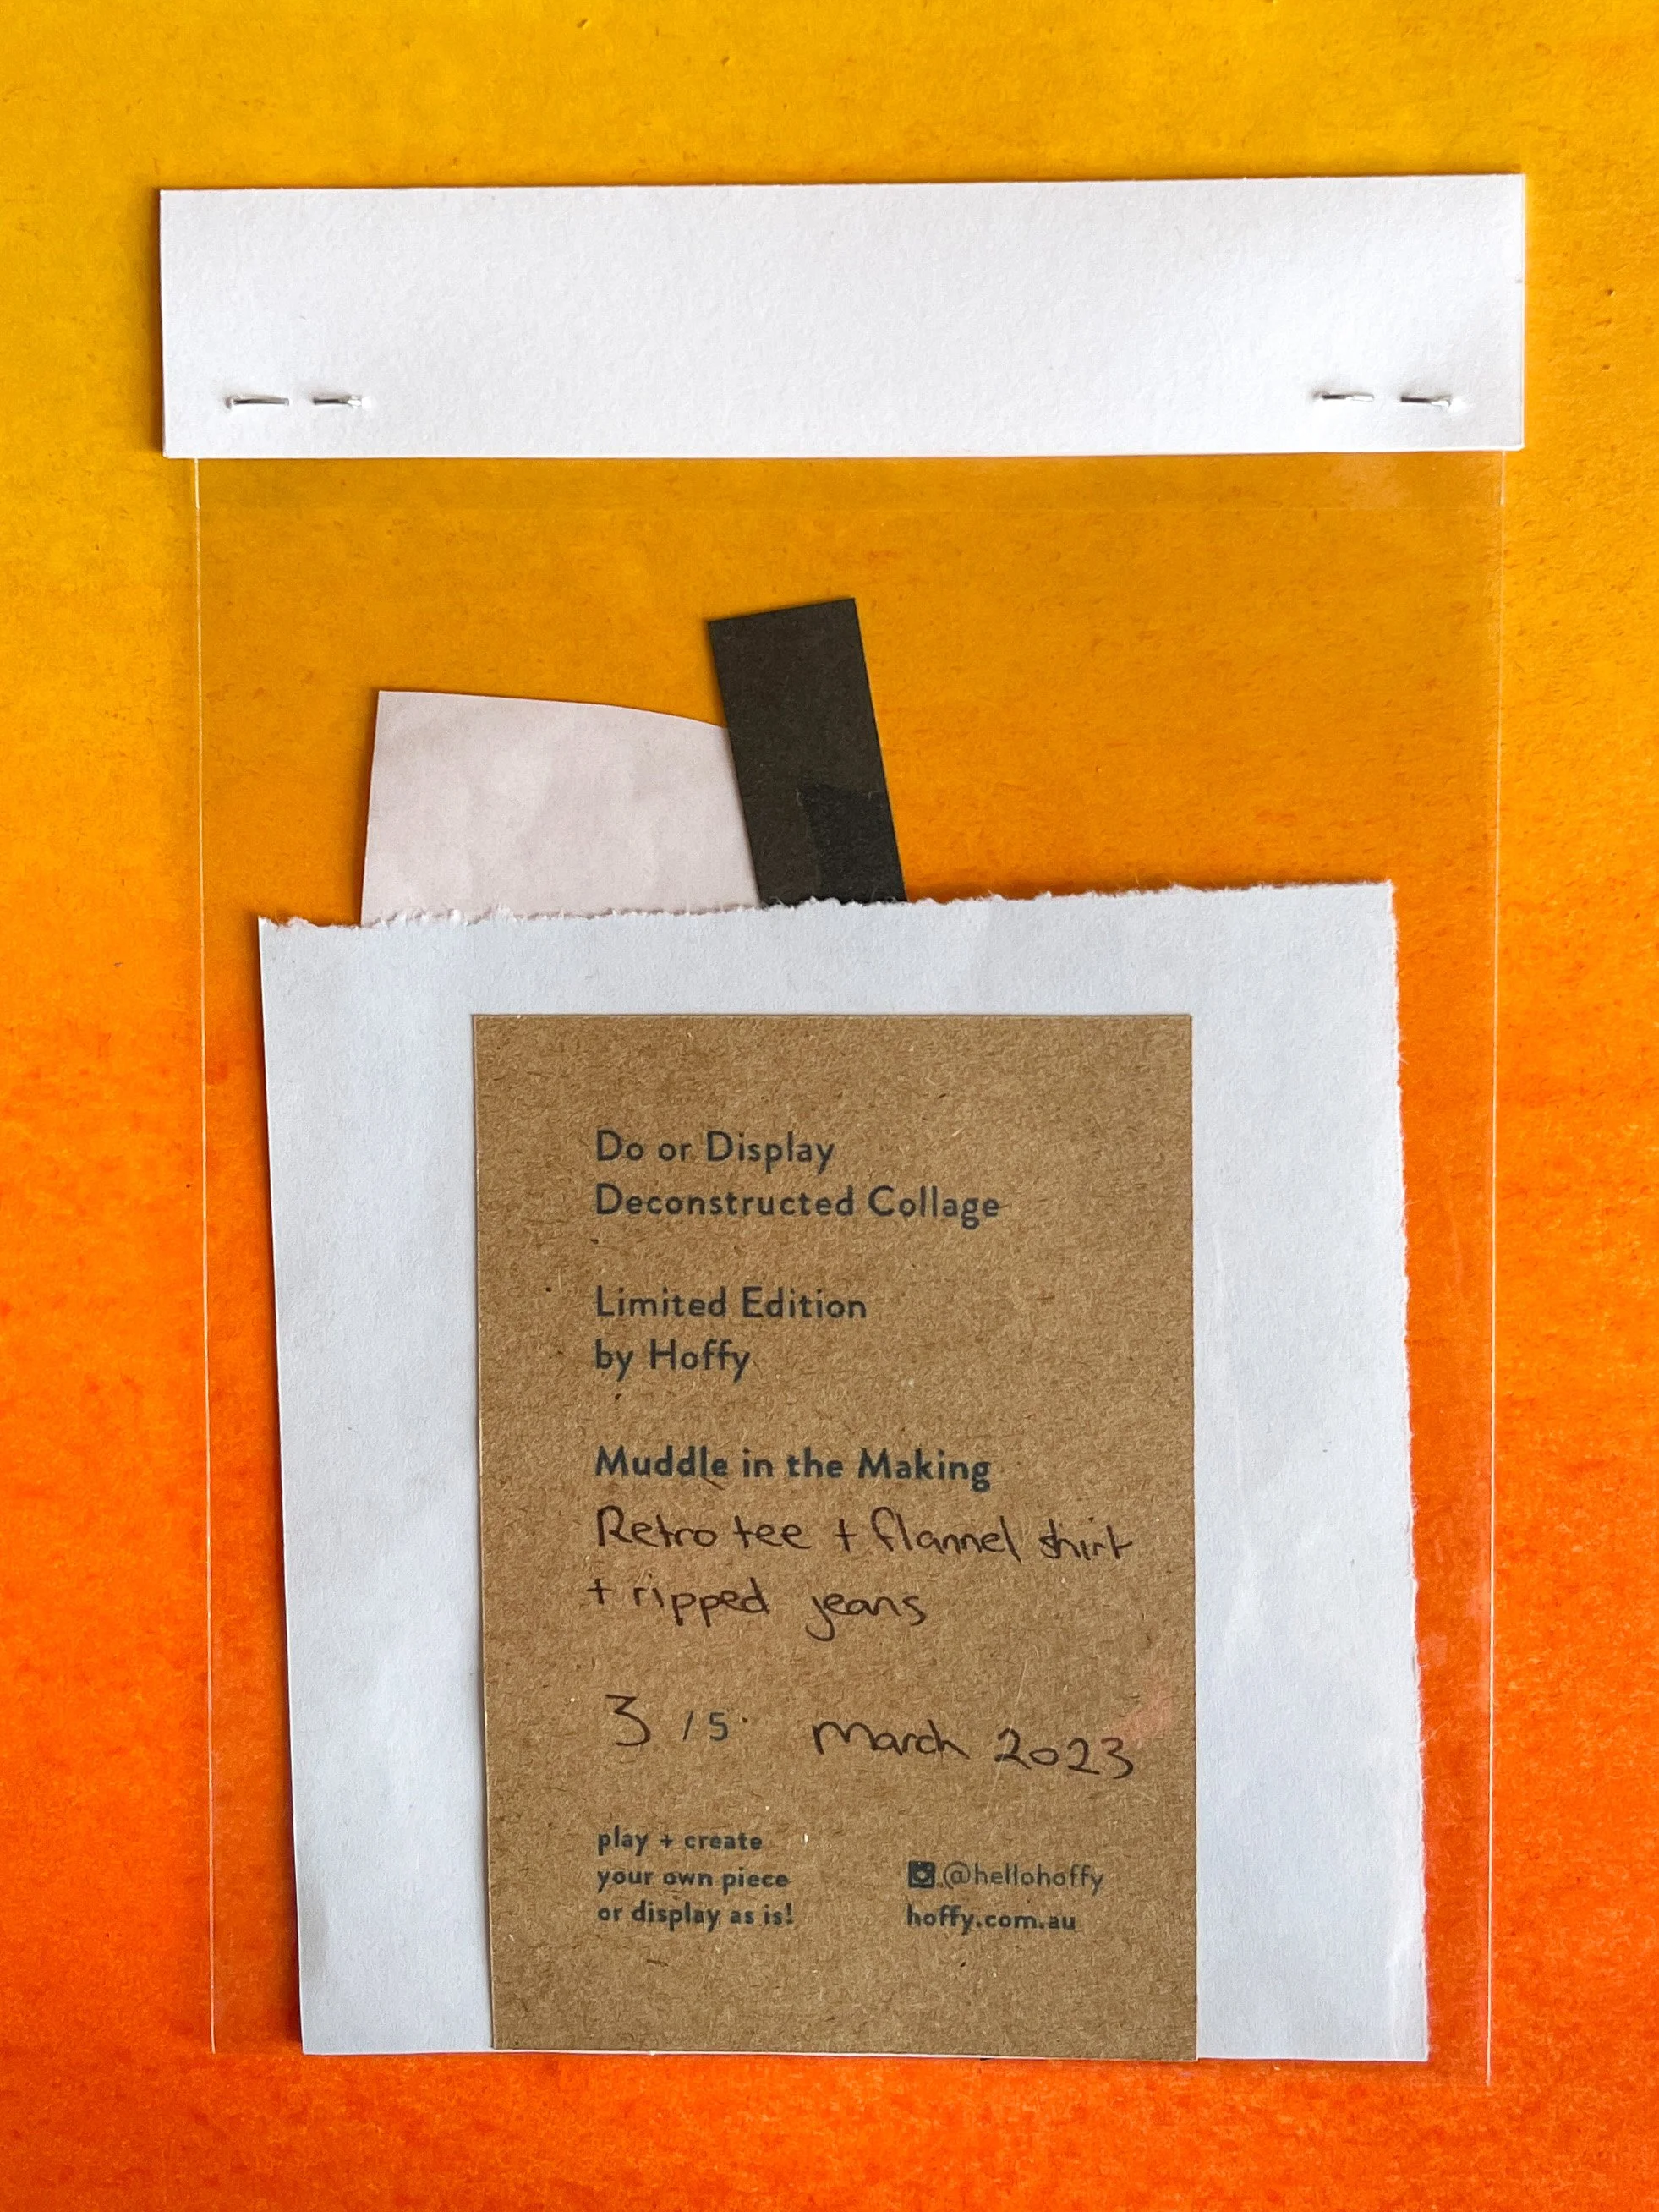 Do or Display
Deconstructed Collage
Limited Edition
by Hoffy
Muddle in the Making
Retro tee + flannel shirt
+ ripped jeans
3 / 5. March 2023
play + create
your own piece
or display as is!
@hellohoffy
hoffy.com.au